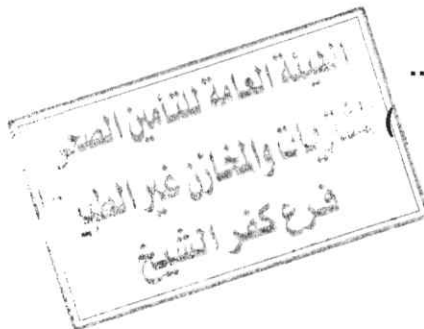 الهيئة العامة للتأمين الصحى
المشتريات والمخازن غير الطبية
فرع كفر الشيخ